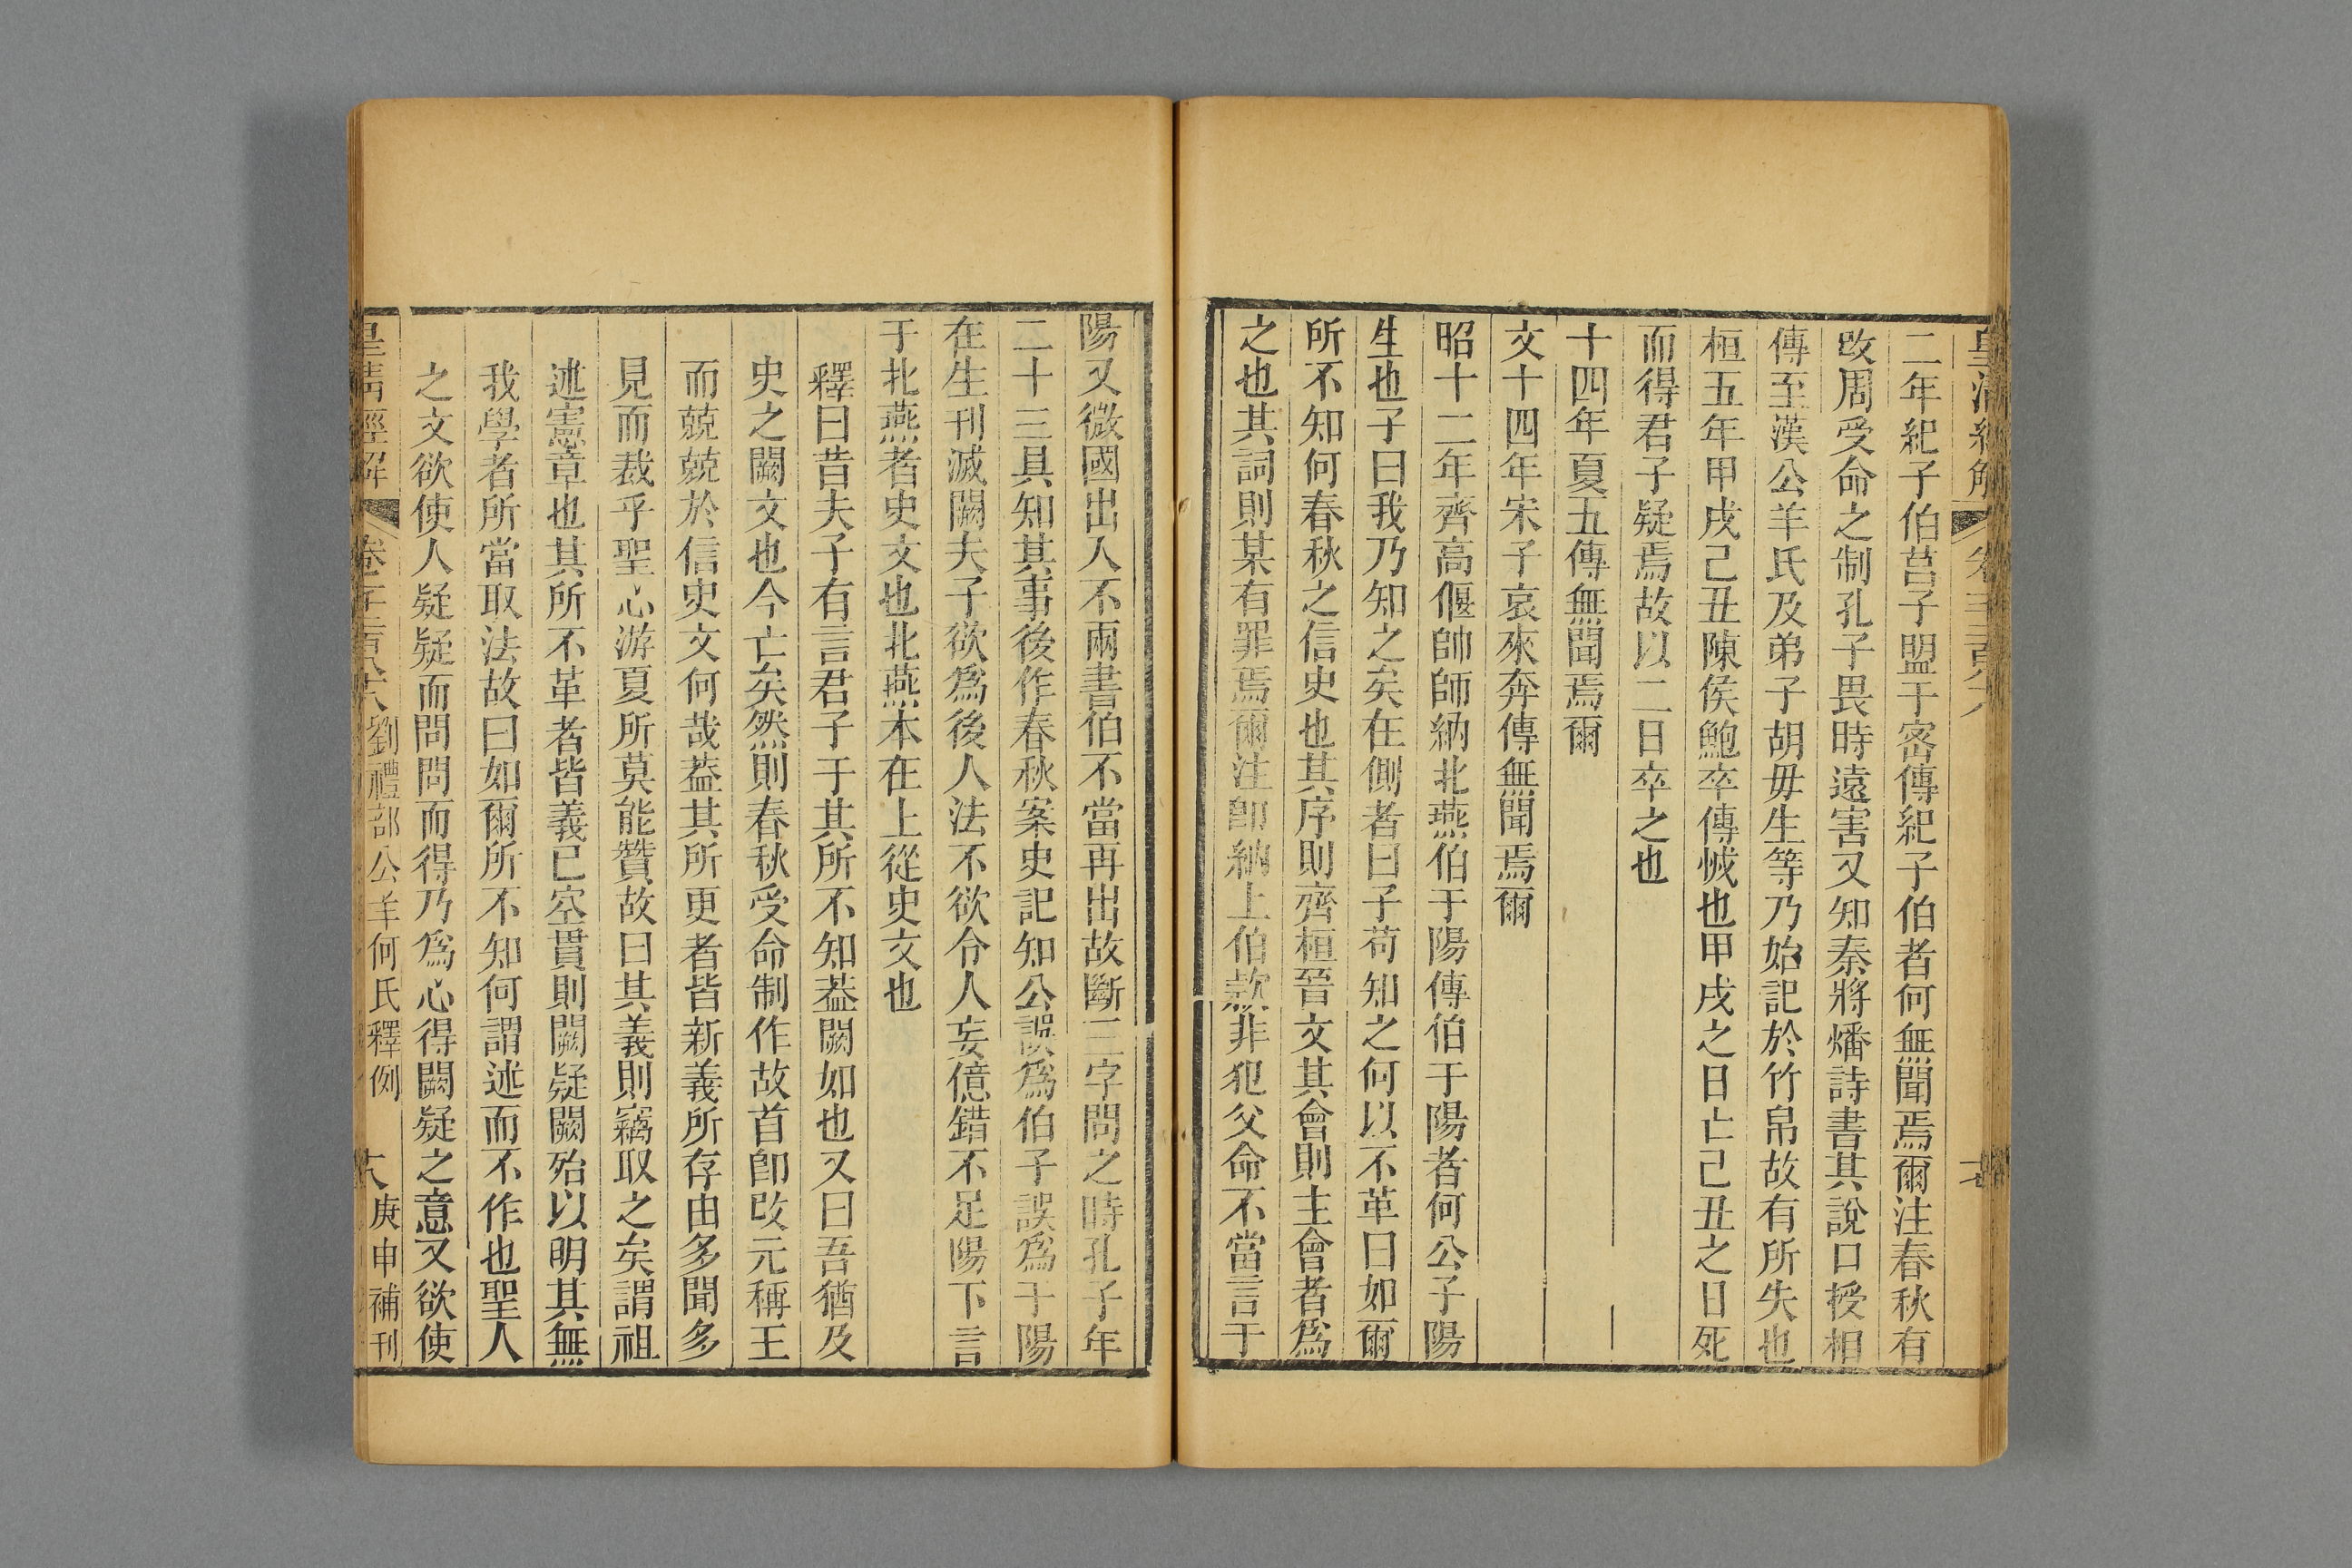 皇清經解
二年紀子伯莒子盟于密傳紀子伯者何無聞焉爾注春秋有
改周受命之制孔子畏時遠害又知秦將燔詩書其說口授相
傳至漢公羊氏及弟子胡毋生等乃始記於竹帛故有所失也
桓五年甲戌己丑陳侯鮑卒傳怴也甲戌之日亡己丑之日死
而得君子疑焉故以二日卒之也
十四年夏五傳無聞焉爾
文十四年宋子哀來奔傳無聞焉爾
昭十二年齊高偃帥師納北燕伯于陽傳伯于陽者何公子陽
生也子曰我乃知之矣在側者曰子苟知之何以不革曰如爾
所不知何春秋之信史也其序則齊桓晉文其會則主會者為
之也其詞則某有罪焉爾注即納上伯款非犯父命不當言于
陽又微國出入不兩書伯不當再出故斷三字問之時孔子年
二十三具知其事後作春秋案史記知公誤爲伯子誤爲于陽
在生刊滅闕夫子欲爲後人法不欲令人妄億錯不足陽下言
于北燕者史文也北燕本在上從史文也
釋曰昔夫子有言君子于其所不知葢闕如也又曰吾猶及
史之闕文也今亡矣然則春秋受命制作故首卽改元稱王
而兢兢於信史文何哉葢其所更者皆新義所存由多聞多
見而裁乎聖心游夏所莫能贊故曰其義則竊取之矣謂祖
述憲章也其所不革者皆義已空貫則闕疑闕殆以明其無
我學者所當取法故曰如爾所不知何謂述而不作也聖人
之文欲使人疑疑而問問而得乃爲心得闕疑之意又欲使
皇清經解 卷 劉禮部公羊何氏釋例 六 庚申補刊